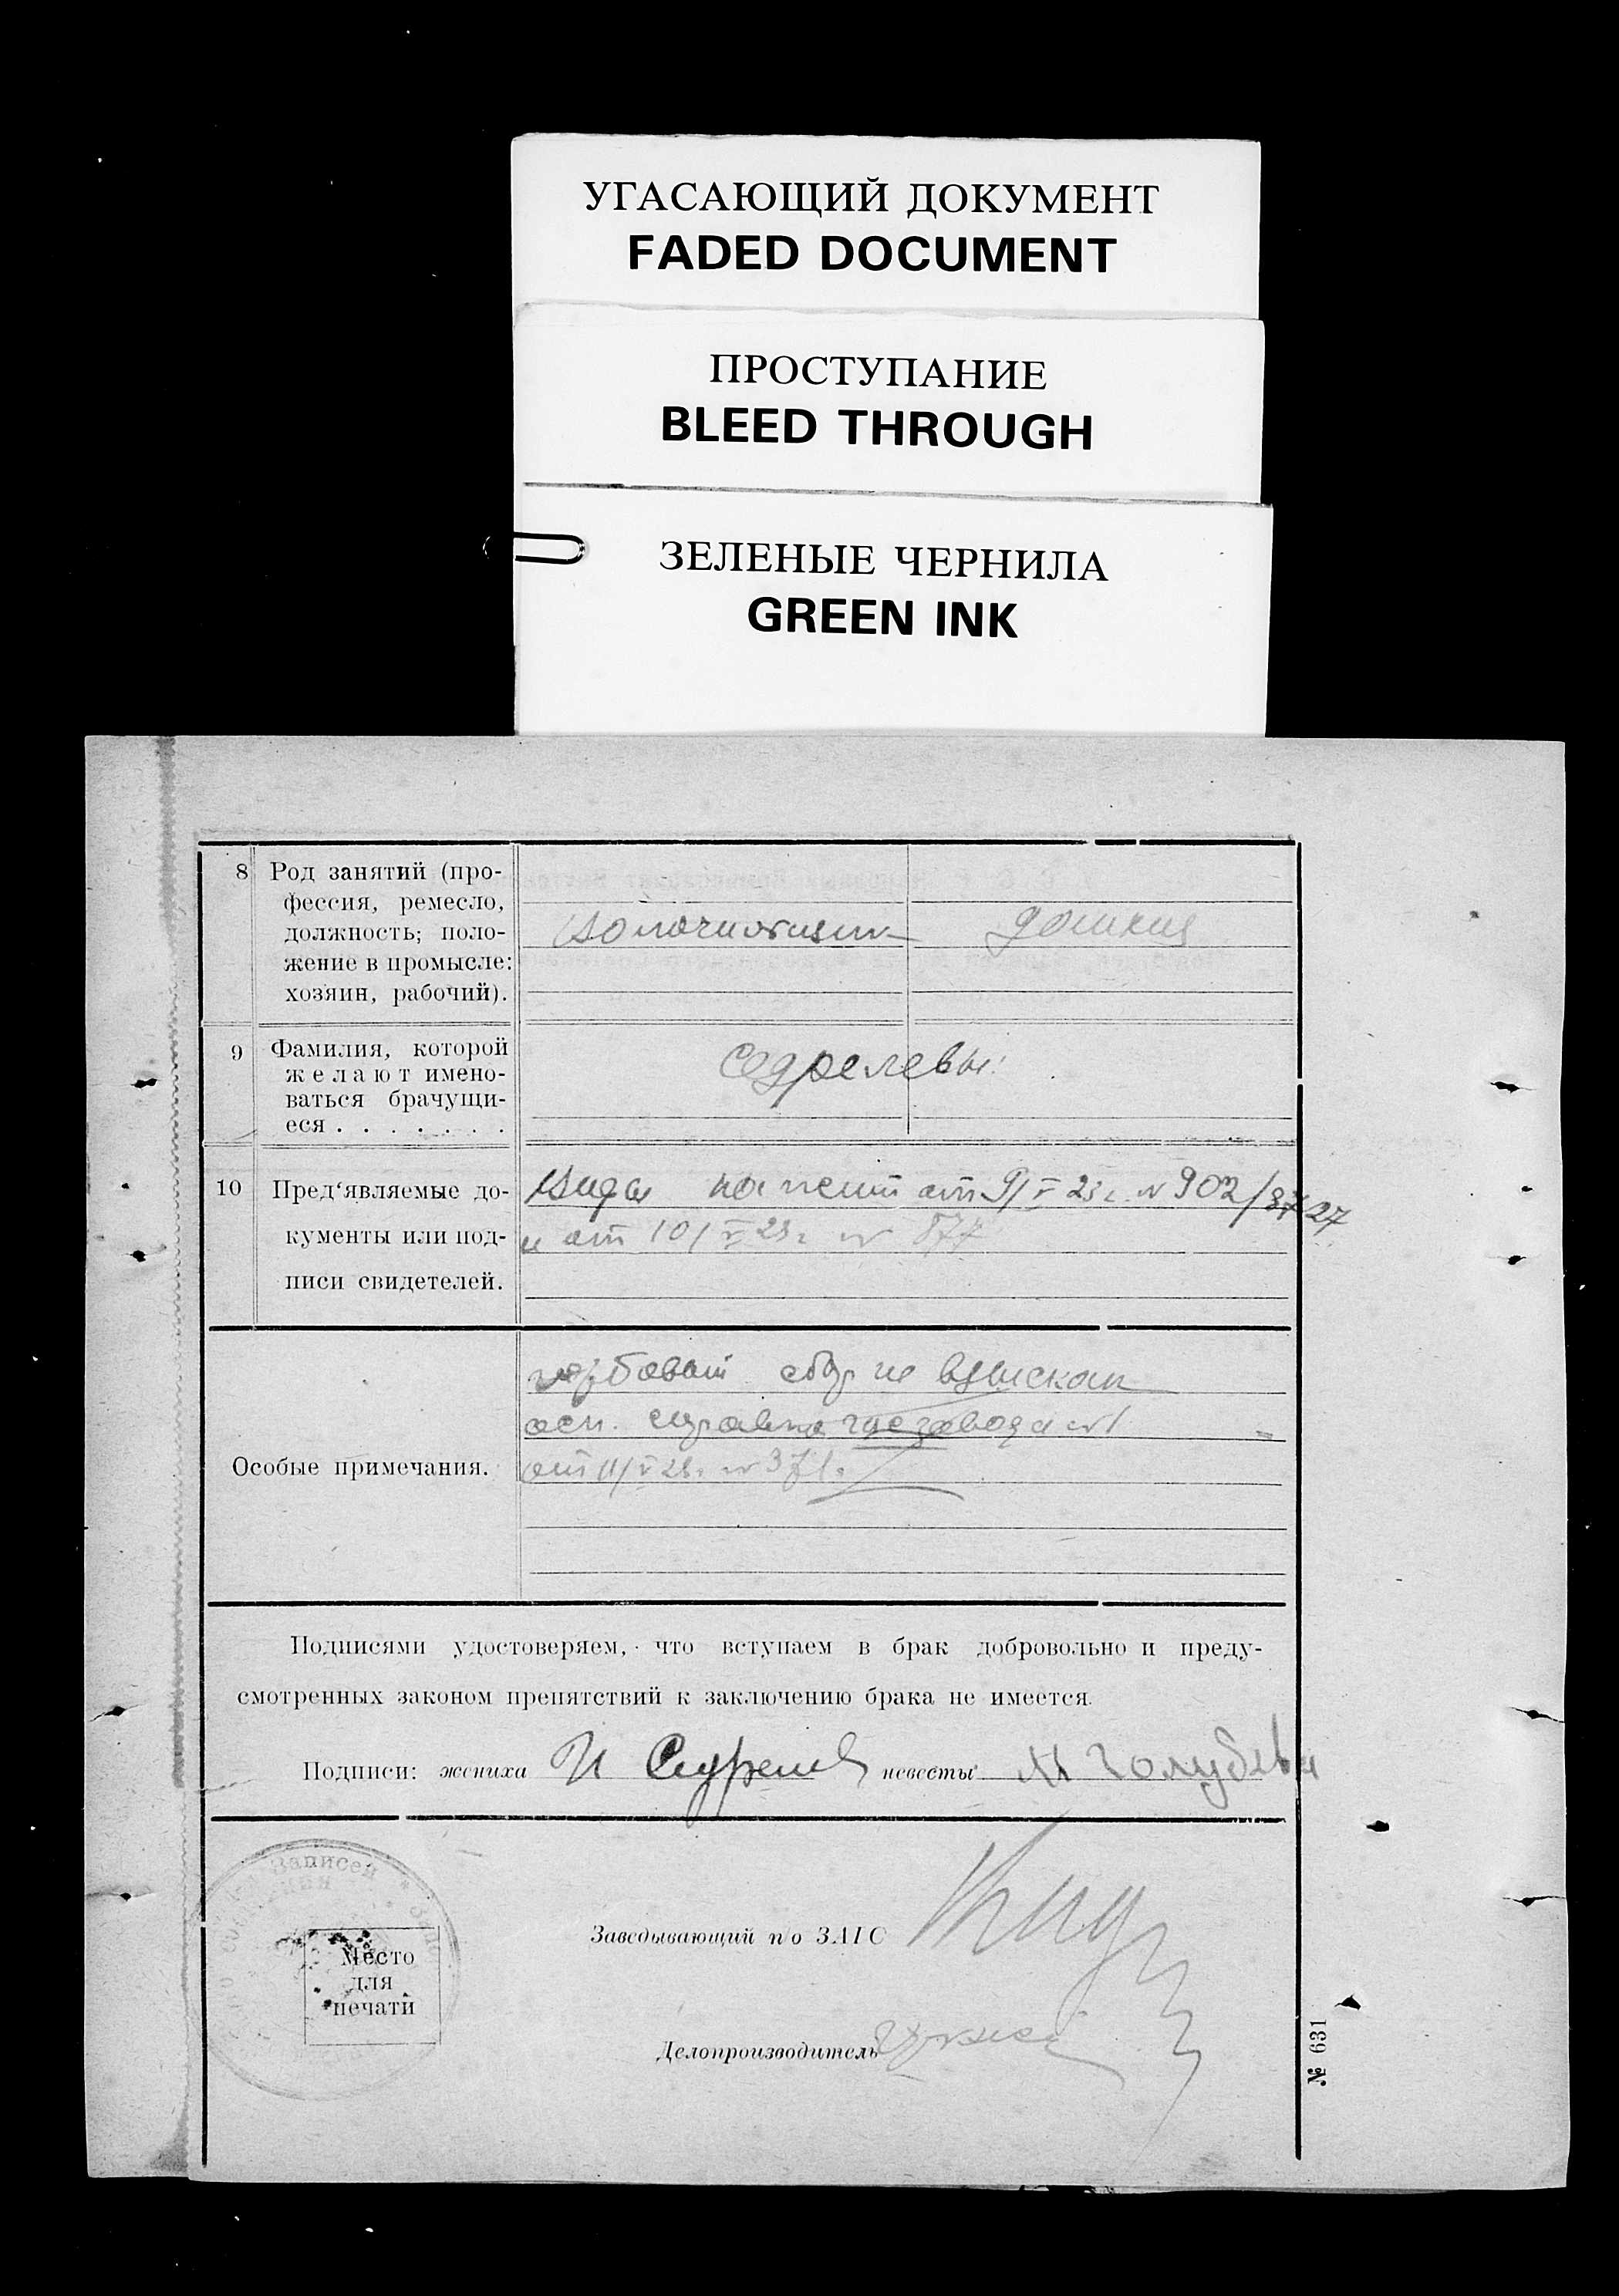 УГАСАЮЩИЙ ДОКУМЕНТ
FADED DOCUMENT
ПРОСТУПАНИЕ
BLEED THROUGH
ЗЕЛЕНЫЕ ЧЕРНИЛА
GREEN INK
8 Род занятий (про-
фессия, ремесло,
должность; поло-
жение в промысле:
хозяин, рабочий).
домаш
9 Фамилия, которой
желают имено-
ваться брачущи-
еся . . . . . . .
10 Пред'являемые до-
кументы или под-
писи свидетелей.
Виды на жит. от 9/V 23 г. № 902/8727
и от 10/V 23 г. № 877
Особые примечания.
гербовый сбор не взыскан
осн. справка завода № 1
от 11/V 23 г. № 371.
Подписями удостоверяем, что вступаем в брак добровольно и преду-
смотренных законом препятствий к заключению брака не имеется.
Подписи: жениха И невесты М Голубева
Записей
Место
для
печати
Заведывающий по ЗАГС
Делопроизводитель
№ 631